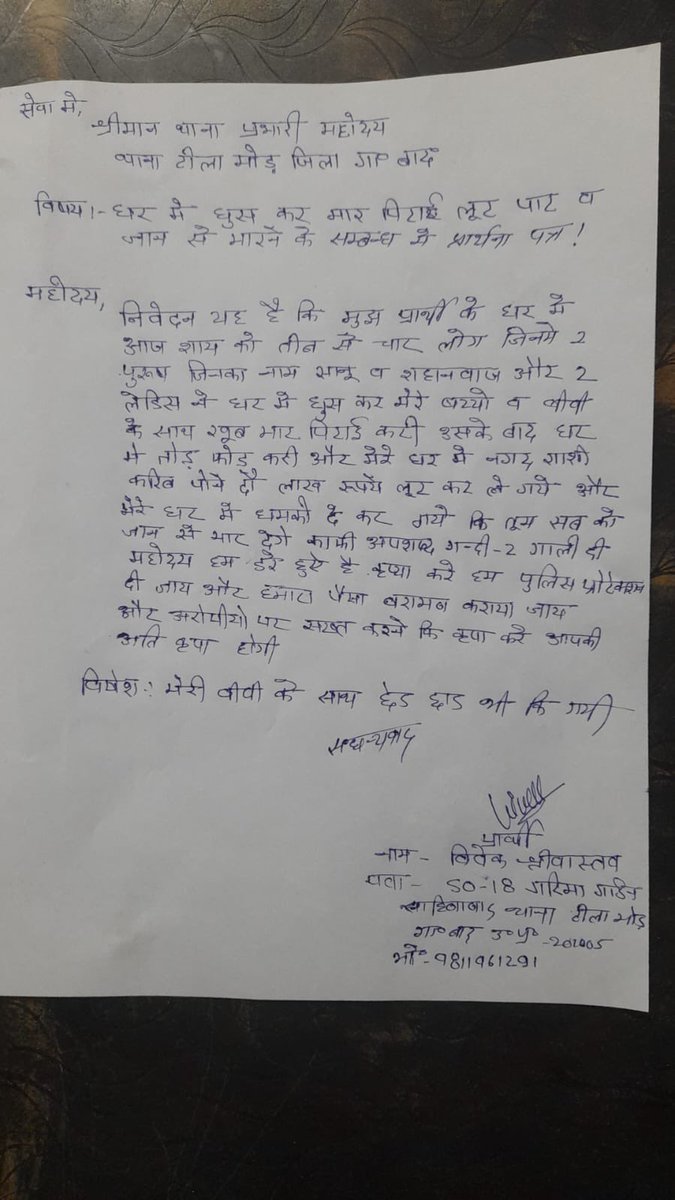 सेवा मे,
श्रीमान थाना प्रभारी महोदय
थाना टीला मोड़ जिला गा० बाद
विषय:- घर मे घुस कर मार पिटाई लूट पाट व
जान से मारने के सम्बन्ध मे प्रार्थना पत्र !
महोदय,
निवेदन यह है कि मुझ प्रार्थी के घर मे
आज शाय को तीन से चार लोग जिनमे 2
पुरूष जिनका नाम सानू व शहानवाज और 2
लेडिस ने घर मे घुस कर मेरे बच्चो व बीवी
के साथ खूब मार पिटाई करी उसके बाद घर
मे तोड़ फोड़ करी और मेरे घर मे नगद राशी
करिब पोने दौ लाख रूपये लूट कर ले गये और
मेरे घर मे धमकी दे कर गये कि तूम सब को
जान से मार देगे काफी अपशब्द गन्दी-2 गाली दी
महोदय हम डरे हुऐ है कृप्या करे हम पुलिस प्रोटेक्शन
दी जाय और हमारा पैसा बरामद कराया जाय
और अरोपीयो पर सख्त करने कि कृपा करे आपकी
अति कृपा होगी
विषेश: मेरी बीवी के साथ छेड छाड भी कि गयी
सधन्यवाद
प्रार्थी
नाम - विवेक श्रीवास्तव
पता - SO-18 गरिमा गार्डन
साहिबाबाद थाना टीला मोड़
गा० बाद उ० प्र० -201005
मो०-9811961291